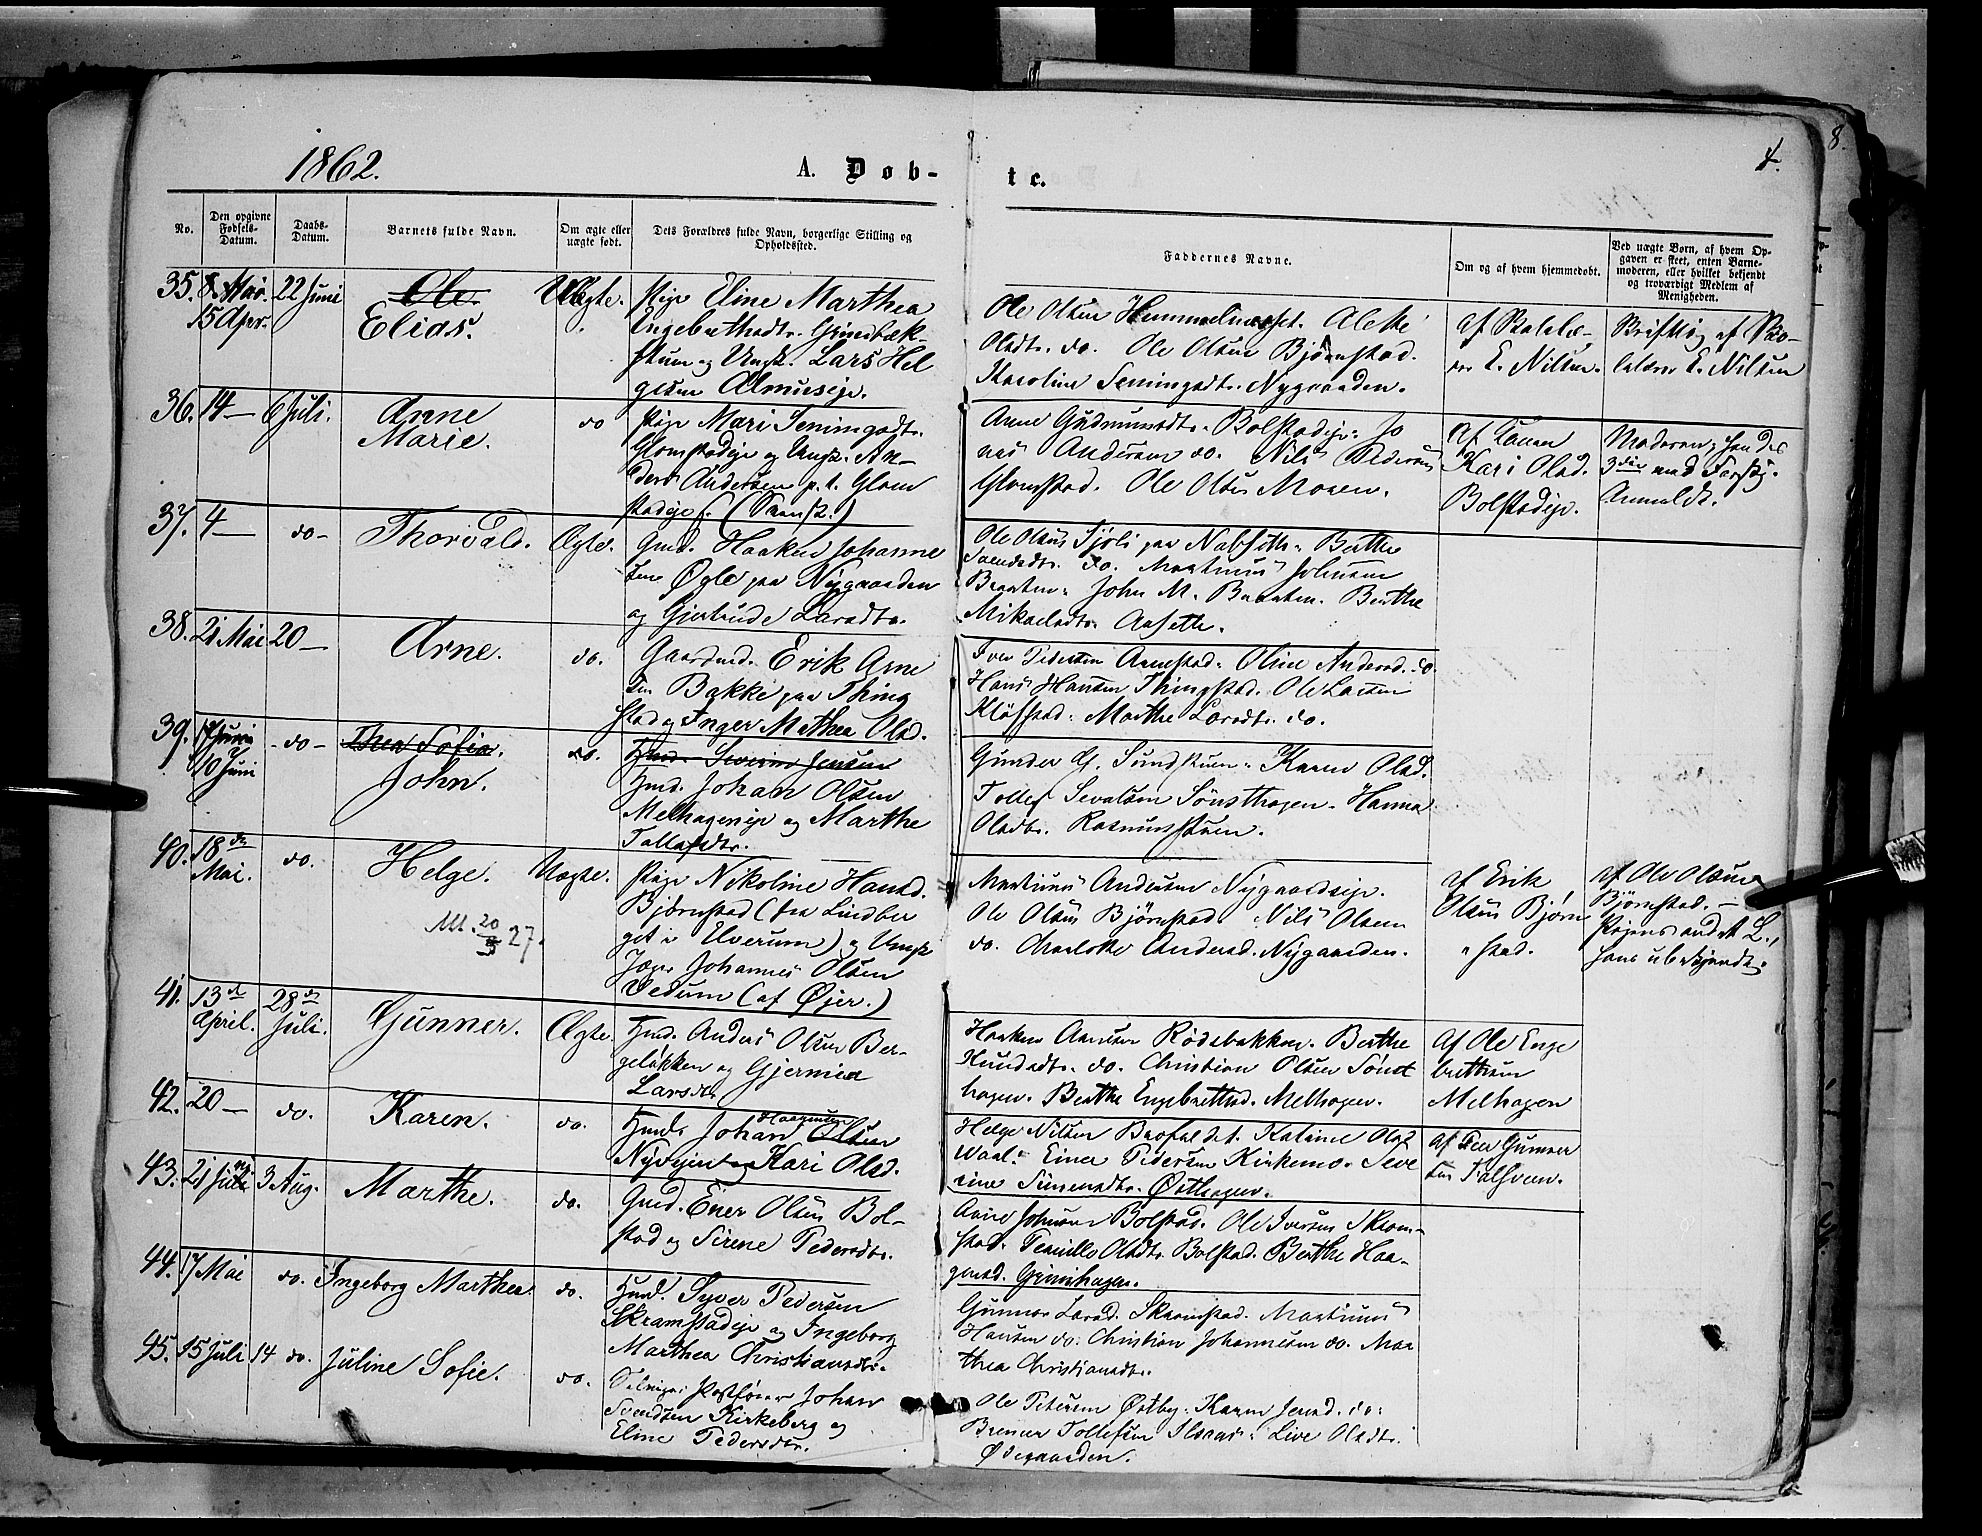 8.
1862.
A. Døb-
te.
4.
No.
Den opgivne Fødsels-Datum.
Daabs-Datum.
Barnets fulde Navn.
Om ægte eller uægte født.
Dets Forældres fulde Navn, borgerlige Stilling og Opholdssted.
Faddernes Navne.
Om og af hvem hjemmedøbt.
Ved uægte Børn, af hvem Opgaven er skeet, enten Barnemoderen, eller hvilket bekjendt og troværdigt Medlem af Menigheden.
35. 8. Mai. 15 Apr. 22 Juni
Ole.
Elias.
Uægte.
Pige Eline Marthea
Ingebrethsdtr. Grindbæk-
stuen og Ungk. Lars Hel
gesen Almuseje.
Ole Olsen Hemmelmoset. Alette
Olsdtr. do. Ole Olsen Bjørnstad.
Karoline Semingsdtr. Nygaarden.
E. Nilsen.
E. Nilsen
36. 14 — 6 Juli.
Anne
Marie.
do
Pige Mari Semingsdtr.
Glomstadeje og Ungk. An-
ders Andersen p. t. Glom
stadeje
Anne Gudmundsdtr. Bolstadeje. Jo
nas Andersen do. Nils Pedersen
Glomstad. Ole Olsen Moen.
Af Konen
Kari Olsd.
Bolstadeje.
Moderen; hendes
3die med
Anmeldt.
37. 4 — do —
Thorvald.
Ægte.
Gmd. Haaken Johanne
sen Øgle paa Nygaarden
og Gjertrude Larsdtr.
Ole Olsen Sjøli paa Nabseth. Berthe
Svendsdtr. do. Martinus Johnsen
Braaten. John M. Braaten. Berthe
Mikaelsdtr. Aaseth.
38. 21 Mai 20 —
Arne.
do.
Gaardmd. Erik Arne
sen Bakke paa Thing
stad og Inger Mathea Olsd.
Iver Pedersen Aamstad. Oline Andersd. do.
Hans Hansen Thingstad. Ole Larsen
Kløfstad. Marthe Larsdtr. do.
39. 17 Juni 10 Juni - do -
Thea Sofia.
John.
do.
Hmd. Severin Jensen
Hmd. Johan Olsen
Melhageneje og Marthe
Tollefsdtr.
Gunder G. Sundstuen. Karen Olsd.
Tollef Sevalsen Sønsthagen. Hanna
Olsdtr. Rasmusstuen.
40. 18de Mai. do.
Helge.
Utt. 20/3 27.
Uægte.
Pige Nikoline Hansd.
Bjørnstad (fra Lindber
get i Elverum) og Ungk
Jæger Johannes Olsen
Vedum (af Øjer.)
Martinus Andersen Nygaardseje.
Ole Olsen Bjørnstad. Nils Olsen
do. Charlotte Andersd. Nygaarden.
af Erik
Olsen Bjørn
stad.
af Ole Olsen
Bjørnstad. —
Pigens andet L.,
hans ubekjendt.
41. 13de April. 28de Juli.
Gunner.
Ægte.
Hmd. Anders Olsen Ber-
geløkken og Gjermia
Larsd.
Haaken Rødsbakken. Berthe
Knudsdtr. do. Christian Olsen Sønst
hagen. Berthe Engebrethsd. Melhagen.
Af Ole Enge
bretsen
Melhagen
42. 20 — do.
Karen.
do.
Haagensen
Hmd. Johan Olsen
Nyvejen og Kari Olsd.
Helge Nilsen Brofaldet. Katrine Olsd
Waal. Einer Pedersen Kirkemo. Seve
rine Simensdtr. Østhagen.
af Peder Gunner
sen Falsveen.
43. 21 Juli 3 Aug.
Marthe.
do.
Gmd. Ener Olsen Bol-
stad og Sirene Pedersdtr.
Anne Johnsen Bolstad. Ole Iversen Skram-
stad. Pernille Olsdtr. Bolstad. Berthe Haa-
gensd. Grinihagen.
44. 17 Mai do.
Ingeborg Marthea.
do.
Hmd. Syver Pedersen
Skramstadeje og Ingeborg
Marthea Christiansdtr.
Gunnor Larsd. Skramstad. Martinus
Hansen do. Christian Johannesen do. Mar
thea Christiansdtr.
45. 15 Juli 14 do.
Juline Sofie.
do.
Johan
Svendsen Kirkeberg og
Eline Pedersdtr.
Ole Petersen Østby. Karen Jensd. do.
Brenner Tollefsen Ilsaas. Live Olsdtr.
Ødegaarden.